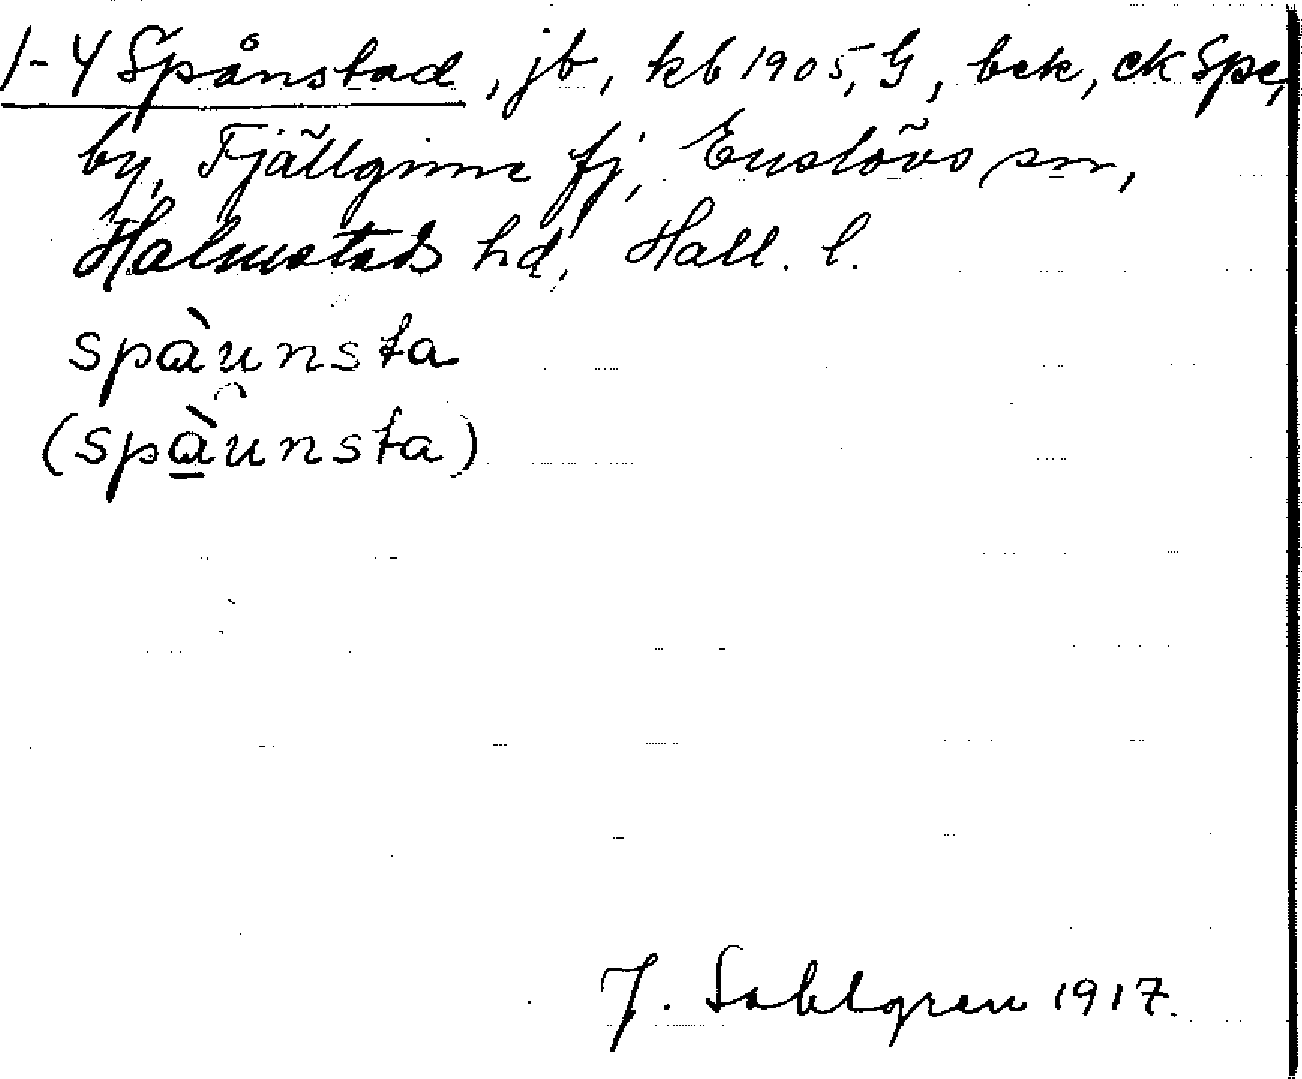 1-4 Spånstad, jb, kb 1905, G, bek, ek Spe,
by, Fjällginne fj, Enslövs sn,
Halmstads hd, Hall. l.
spàu̯nsta
(spà̱u̯nsta)
J. Sahlgren 1917.